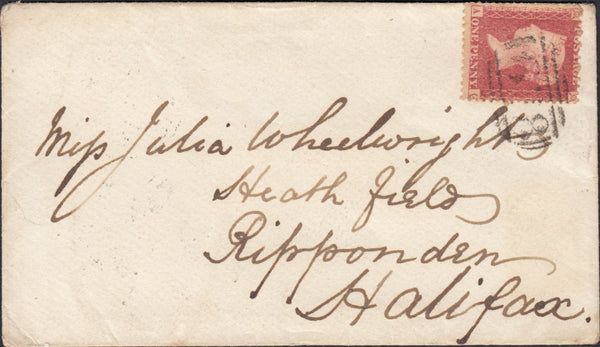 ONE PENNY
Miss Julia Wheelwright
Heath field
Ripponden
Halifax.